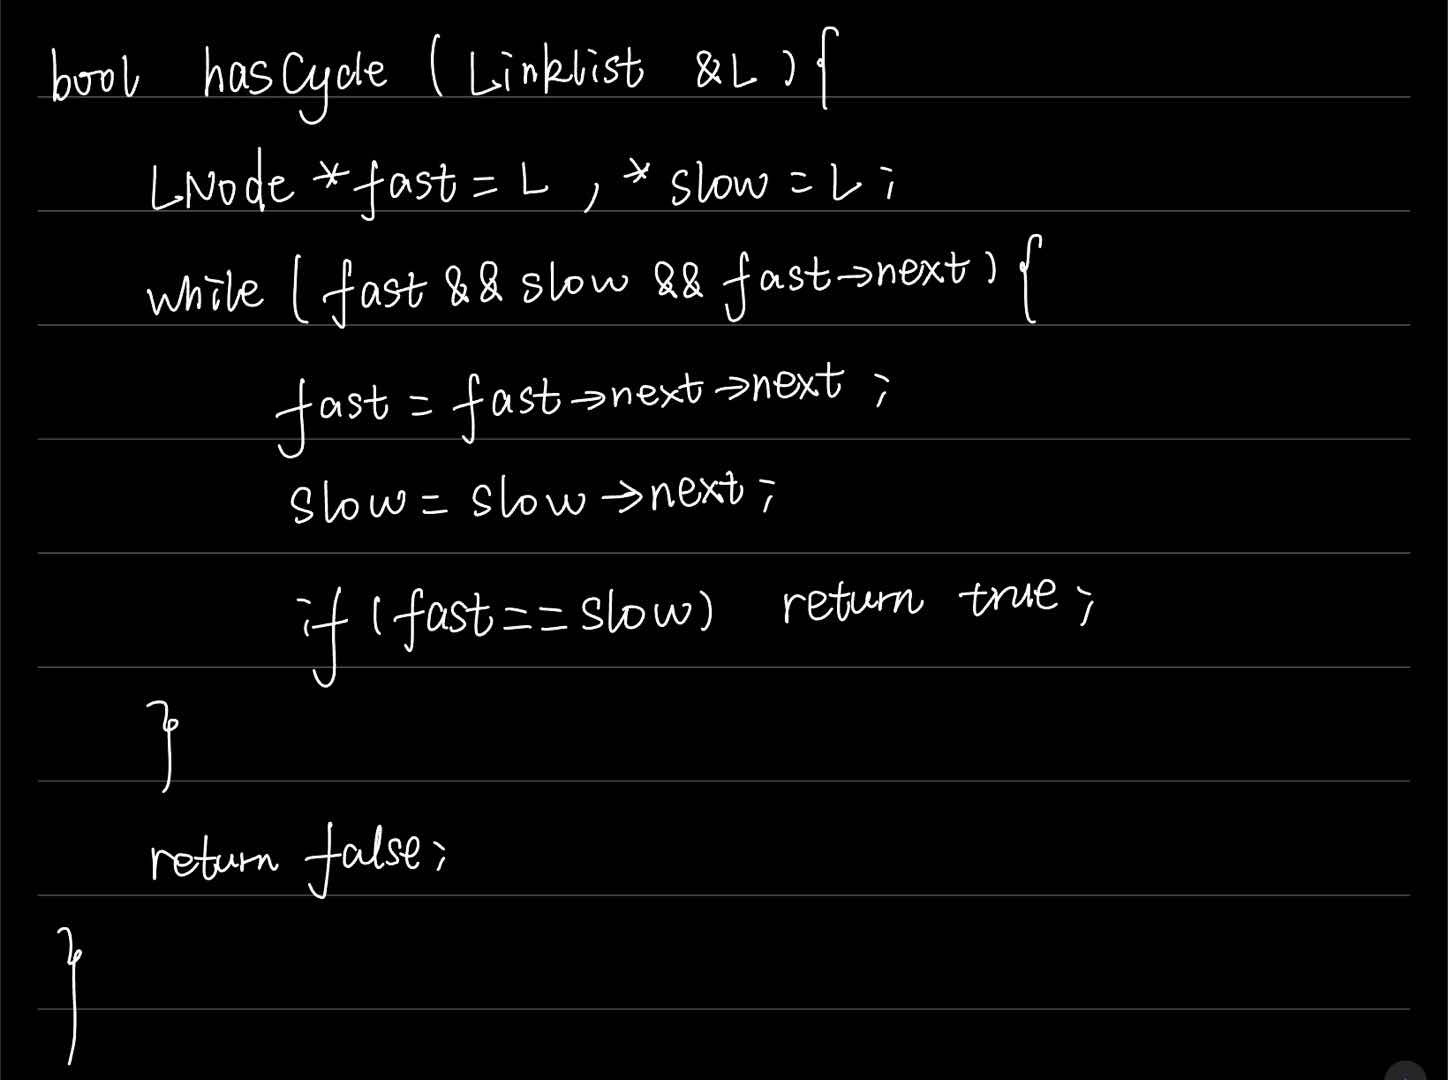 bool hasCycle (Linklist &L){
LNode *fast=L, *slow=L;
while (fast && slow && fast->next){
fast = fast->next->next;
slow = slow->next;
if (fast==slow) return true;
}
return false;
}